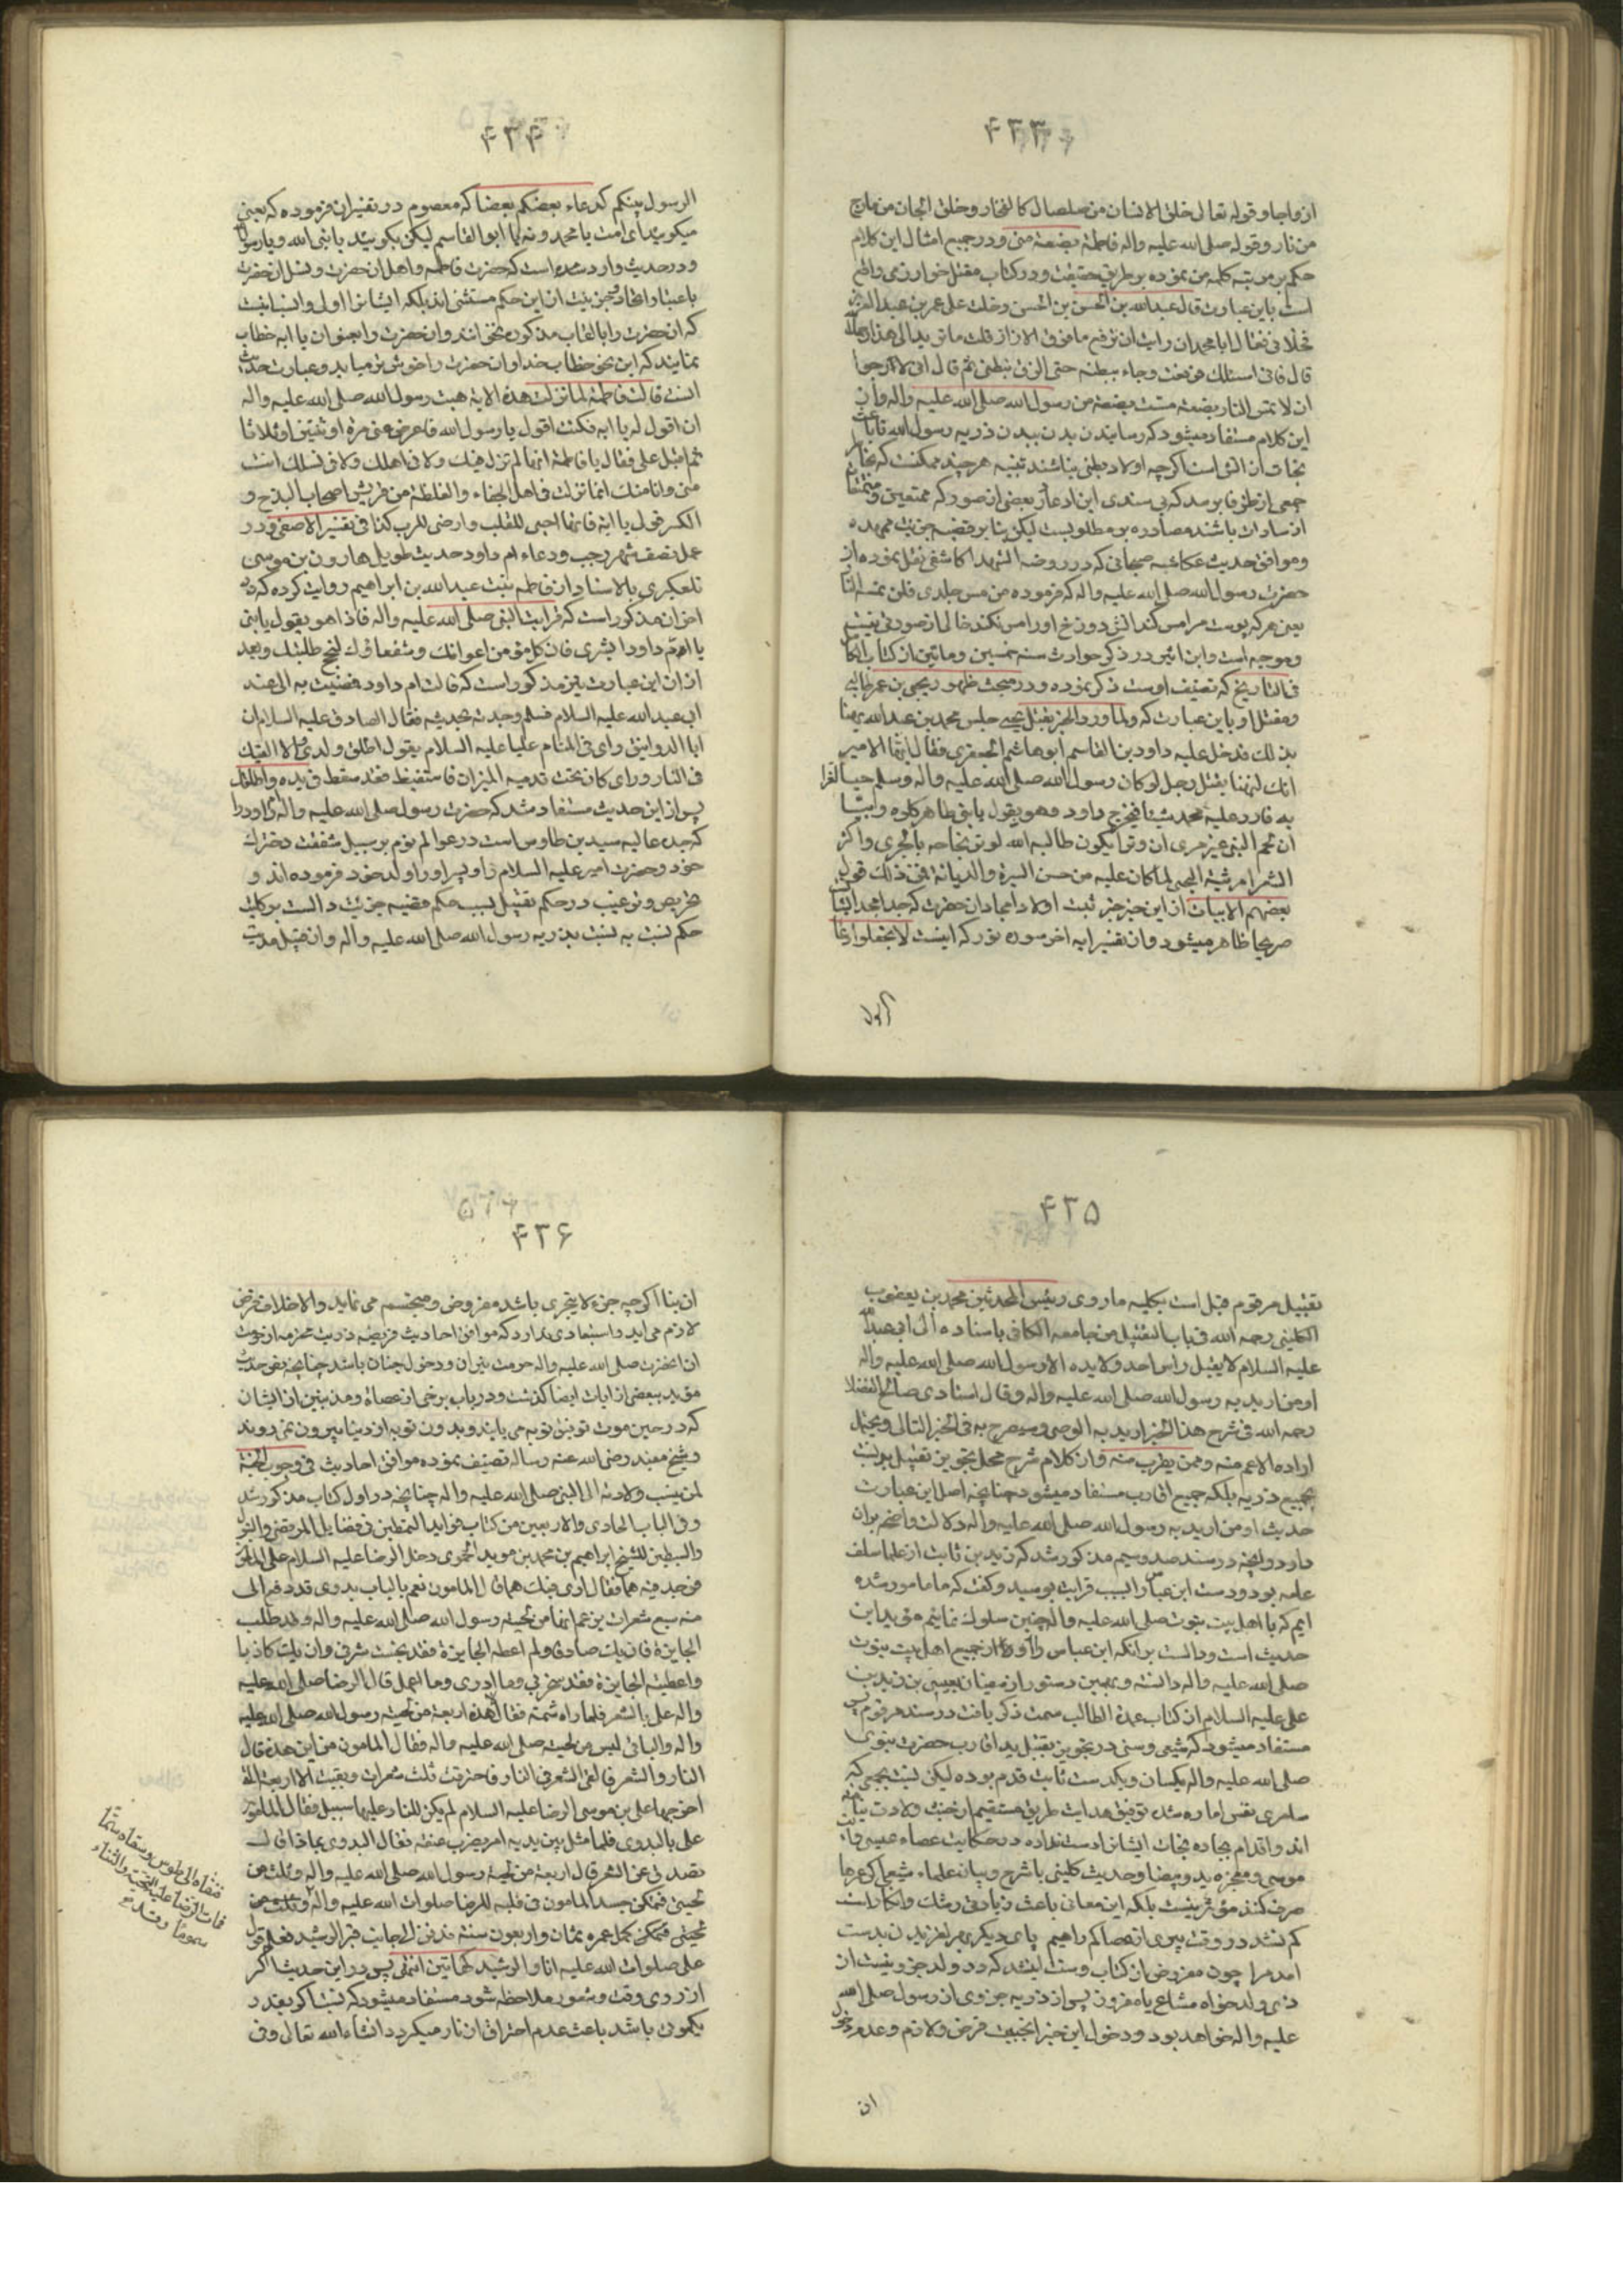 ۴۳۳
ازواجا و قوله تعالی خلق الانسان من صلصال کالفخار و خلق الجان من مارج
من نار و قوله صلی الله علیه واله فاطمة بضعة منی و در جمیع امثال این کلام
حکم بر مرتبه کلمه من نموده بر طریق حقیقت و در کتاب مقتل خوارزمی واقع
است باین عبارت قال عبدالله بن الحسن بن الحسن دخلت علی عمر بن عبدالعزیز
فقال یا ابا محمد ان رایت ان ترفع ما فوق الازار قلت ما ترید الی هذا رحمک الله
قال فانی اسئلک فرفعت وجاء ببطنه حتی الزق ببطنی ثم قال انی لارجوا
ان لا تمس النار بضعة مست بضعة من رسول الله صلی الله علیه واله و از
این کلام مستفاد میشود که رسانیدن بدن ببدن ذریه رسول الله باعث
نجات از آتش است اگر چه اولاد بطنی نباشند تنبیه هر چند ممکنست که بخاطر
جمعی از طرفا برسد که بی سندی این ادعا از بعضی از صور که ممتعین و متمتعا
از سادات باشند مصادره بر مطلوبست لیکن بنا بر قضیه جزئیت ممهده
و موافق حدیث عکاشه صحابی که در روضة الشهدا کاشفی نقل نموده از
حضرت رسول الله صلی الله علیه واله که فرموده من مس جلدی فلن تمسه النار
یعنی هر که پوست مرا مس کند آتش دوزخ او را مس نکند خالی از صورتی نیست
و موجه است و ابن اثیر در ذکر حوادث سنه خمسین و ماتین از کتاب الکامل
فی التاریخ که تصنیف اوست ذکر نموده و در مبحث ظهور یحیی بن عمر طالبی
و مقتل او باین عبارت که ولما ورد الخبر بقتل یحیی جلس محمد بن عبدالله یهنا
بذلک فدخل علیه داود بن القاسم ابو هاشم الجعفری فقال ایها الامیر
انک لتهنا بقتل رجل لو کان رسول الله صلی الله علیه واله وسلم حیا لعزا
به فما رد علیه محمد شیئا فخرج داود وهو یقول یا بنی طاهر کلوه وابیّا
ان لحم النبی غیر مری ان وترا یکون طالبه الله لوتر نجاحه بالحری و اکثر
الشعرا مرثیة الیحیی لما کان علیه من حسن السیرة والدیانة فمن ذلک قول
بعضهم الابیات از این خبر جزئیت اولاد امجاد ان حضرت که جدا مجد ایشان
صریحا ظاهر میشود و از تفسیر ایه اخر سوره نور که اینست لا تجعلوا دعا
الرسول
۴۳۴
الرسول بینکم کدعاء بعضکم بعضا که معصوم در تفسیر ان فرموده که یعنی
میکوئید ای امت یا محمد و نه یا ابو القاسم لیکن بکوئید یا نبی الله و یا رسول الله
و در حدیث وارد شده است که حضرت فاطمه و اهل ان حضرت و نسل ان حضرت
باعتبار اتحاد و جزئیت از این حکم مستثنی اند بلکه ایشانرا اولی و انسب اینست
که ان حضرت را بالقاب مذکوره نخوانند و ان حضرت را بعنوان یا ابه خطاب
نمایند که این نحو خطاب خدا و ان حضرت را خوش تر میاید و عبارت حدیث
اینست قالت فاطمة لما نزلت هذه الایة هبت رسول الله صلی الله علیه واله
ان اقول له یا ابه فکنت اقول یا رسول الله فاعرض عنی مرة او ثنتین او ثلاثا
ثم اقبل علی فقال یا فاطمة انها لم تنزل فیک ولا فی اهلک ولا فی نسلک انت
منی وانا منک انما نزلت فی اهل الجفاء والغلظة من قریش اصحاب البذخ و
الکبر قولی یا ابة فانها احیی للقلب و ارضی للرب کذا فی تفسیر الاصفی و در
عمل نصف شهر رجب و دعاء ام داود حدیث طویل هارون بن موسی
تلعکبری بالاسناد از فاطمه بنت عبدالله بن ابراهیم روایت کرده که در
اخر ان مذکور است که فرایت النبی صلی الله علیه واله فاذا هو یقول یا بنی
یا ام داود ابشری فان کل من من اعوانک و شفعاؤک لنجح طلبتک و بعد
از ان این عبارت نیز مذکور است که قالت ام داود فمضیت به الی عند
ابی عبدالله علیه السلام فسلم وحدثه بحدیثه فقال الصادق علیه السلام ان
ابا الدوانیق رای فی المنام علیا علیه السلام یقول اطلق ولدی والا القیک
فی النار ورای کان تحت قدمیه النیران فاستیقظ وقد سقط فی یده واطلقک
پس از این حدیث مستفاد شد که حضرت رسول صلی الله علیه واله ام داود را
که جده عالیه سید بن طاوس است در عوالم نوم بر سبیل شفقت دخترک
خود و حضرت امیر علیه السلام داود پسر او را ولد خود فرموده اند و
تحریص و ترغیب در حکم تقبیل بسبب حکم قضیه جزئیت دالست بر کلیت
حکم نسبت به نسبت بذریه رسول الله صلی الله علیه واله و ان قبیل حدیث
۴۳۵
تقبیل مرقوم قبل است بکلیه ما روی رئیس المحدثین محمد بن یعقوب
الکلینی رحمه الله فی باب التقبیل من جامعه الکافی باسناده الی ابی عبدالله
علیه السلام لا یقبل راس احد ولا یده الا رسول الله صلی الله علیه واله
او من ارید به رسول الله صلی الله علیه واله وقال استادی صالح الفضلا
رحمه الله فی شرح هذا الخبر ارید به الوصی و سیصرح به فی الخبر التالی و یحتمل
اراده الاعم منه وممن یقرب منه و از کلام شرح محل تجویز تقبیل ید نسبت
بجمیع ذریه بلکه جمیع اقارب مستفاد میشود چنانچه اصل این عبارت
حدیث او من ارید به رسول الله صلی الله علیه واله دلالت واضحه بر ان
دارد و انچه در سند صد و سیم مذکور شد که زید بن ثابت از علما سلف
عامه بود و دست ابن عباس را بسبب قرابت بوسید و کفت که ما مامور شده
ایم که با اهل بیت نبوت صلی الله علیه واله چنین سلوک نمائیم مؤید این
حدیث است و دالست بر انکه ابن عباس را او از جمیع اهل بیت نبوت
صلی الله علیه واله دانسته و بهمین دستور از بن زید بن
علی علیه السلام از کتاب عمدة الطالب سمت ذکر یافت در سند مرقوم پس
مستفاد میشود که شیعی و سنی در تجویز تقبیل ید اقارب حضرت نبوی
صلی الله علیه واله یکسان و یکدست ثابت قدم بوده لیکن نسبت بجمعی که
سامری نفس اماره سد توفیق هدایت طریق مستقیم از خبث ولادت
اند و اقدام بجاده نجات ایشانرا دست نداده در حکایت عصاء عیسی و
موسی و معجزه ید و بیضا و حدیث کلینی با شرح و بیان علماء شیعی که عرها
صرف کنند مؤثر نیست بلکه این معانی باعث زیادتی رشک و انکار است
کم نشد در وقت پیری از عصا کم راهیم پای دیکری بر لغزیدن بدست
امد مرا چون مفروض ان کتاب و سنت اینشد که در ولد جزوئیست از
ذی ولد خواه مشاع یا مفروز پس از ذریه جزوی از رسول صلی الله
علیه واله خواهد بود و دخول این خبر انجیف فرض و لازم و عدم دخول
ان
۴۳۶
ان بنا اگر چه جزء لا یتجزی باشد مفروض و متجسم می نماید والا خلاف فرض
لازم می اید و استبعادی ندارد که موافق احادیث فریضه ذریت محترمه ان
ان حضرت صلی الله علیه واله حرمت نیران و دخول جنان باشد چنانچه بقی حدیث
مؤید ببعضی از ایات ایضا کذشت و در باب برخی از عصاة و مذنبین از ایشان
که در حین موت توفیق توبه می یابند و بدون توبه از دنیا بیرون نمی روند
و شیخ مفید رضی الله عنه رساله تصنیف نموده موافق احادیث فی وجوب الجنة
لمن ینسب ولادته الی النبی صلی الله علیه واله چنانچه در اول کتاب مذکور شد
و فی الباب الحادی والاربعین من کتاب فراید السمطین فی فضایل المرتضی والبتول
والسبطین للشیخ ابراهیم بن محمد بن موید الحموی دخل الرضا علیه السلام علی المامون
فوجد فیه هما فقال اری فیک هما قال المامون نعم بالباب بدوی قد دفع الی
منه سبع شعرات یزعم انها من لحیة رسول الله صلی الله علیه واله وقد طلب
الجایزة فان یک صادقا ولم اعطه الجایزة فقد بخست شرفی وان یک کاذبا
واعطیته الجایزة فقد سخر بی وما ادری وما اعمل قال الرضا صلی الله علیه
واله علی بالشعر فلما راه شمه فقال هذه اربعة من لحیة رسول الله صلی الله علیه
واله والباقی لیس من لحیته صلی الله علیه واله فقال المامون من این هذه قال
النار والشعر فالقی الشعر فی النار فاحترقت ثلث شعرات وبقیت الاربعة التی
اخرجها علی بن موسی الرضا علیه السلام لم یکن للنار علیها سبیل فقال المامون
علی بالبدوی فلما مثل بین یدیه امر بضرب عنقه فقال البدوی بماذا قال
تصدقنی عن الشعر قال اربعة من لحیة رسول الله صلی الله علیه واله وثلث من
لحیتی فتمکن حسد المامون فی قلبه للرضا صلوات الله علیه واله وثلث من
لحیتی فتمکن عمره ثمان واربعون سنة فدفن الی جانب قبر الرشید فعلم قول
علی صلوات الله علیه انا والرشید کهاتین انتهی پس در این حدیث اگر
از روی وقت و شعور ملاحظه شود مستفاد میشود که نسبت اگر بقدر
یکموی باشد باعث عدم احتراق از نار میکردد انشاءالله تعالی و فی
فنفاه الی طوس وسقاه سمّا
فمات الرضا علیه التحیة والثناء
سموما وقد تم